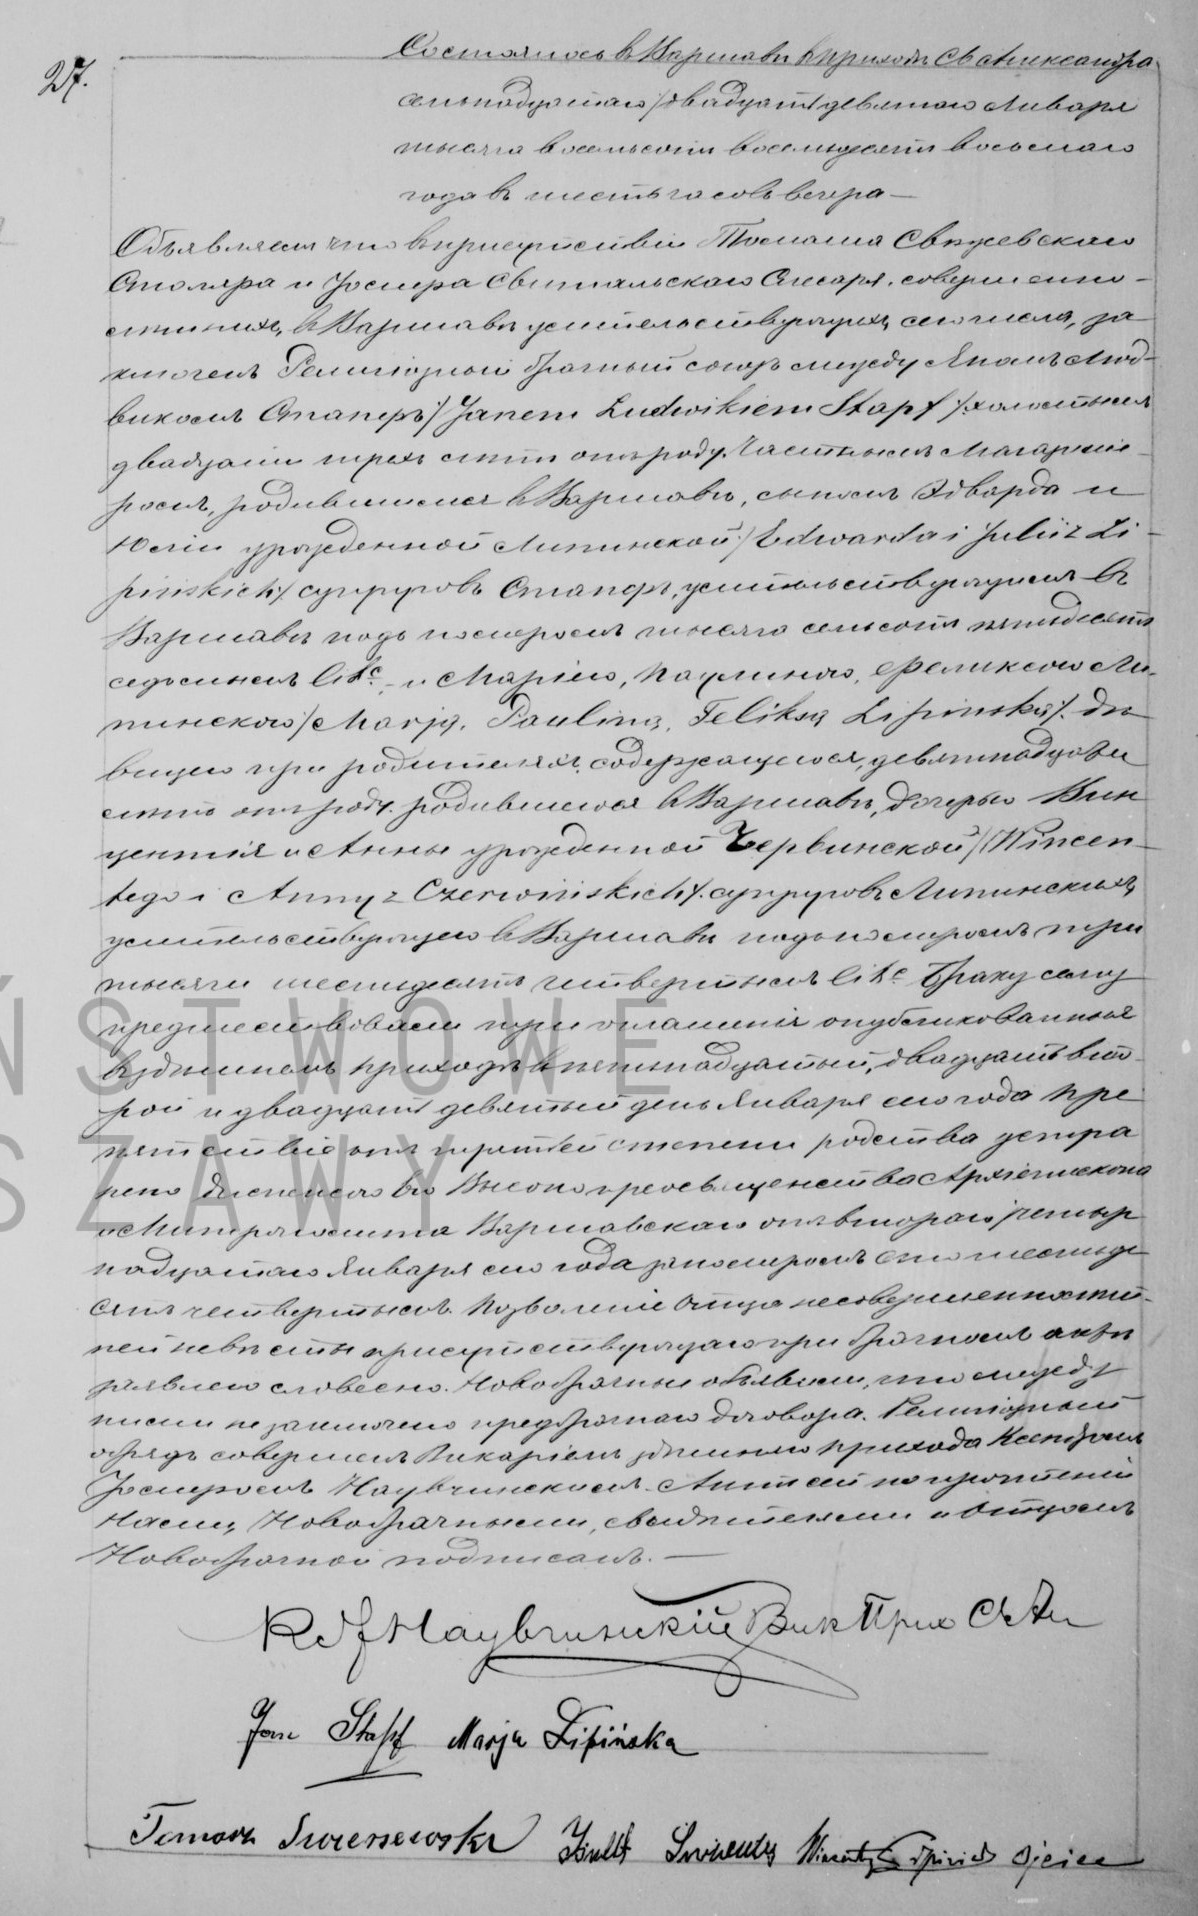 27.
Состоялось в Варшаве в приходе Св Александра
семнадцатаго /двадцать девятаго Января
тысяча восемьсотъ восемьдесятъ восьмаго
года въ шесть часовъ вечера —
Объявляемъ что въ присутствіи Томаша
Столяра и Іосифа Свентальскаго Слесаря, совершенно-
лѣтнихъ, въ Варшавѣ жительствующихъ, сего числа, за
ключенъ Религіозный брачный союзъ между Яномъ Люд-
викомъ Стапфъ /Janem Ludwikiem Stapf/ холостымъ
двадцати трехъ лѣтъ отъ роду, Частнымъ
родившимся въ Варшавѣ, сыномъ Эдварда и
Юліи урожденной Липинской /Edwarda i Julii z Li-
pińskich/ супруговъ Стапфъ, жительствующимъ въ
Варшавѣ подъ номеромъ тысяча семьсотъ пятьдесятъ
седьмымъ litc, и Маріею, Паулиною, Феликсою Ли-
пинскою /Marją, Pauliną, Feliksą Lipinską/ дѣ
вицею при родителяхъ содержащеюся, девятнадцати
лѣтъ отъ роду, родившеюся въ Варшавѣ, дочерью Вин
центія и Анны урожденной Червинской /Wincen-
tego i Anny z Czerwińskich/ супруговъ Липинскихъ,
жительствующею въ Варшавѣ подъ номеромъ три
тысячи шестьдесятъ четвертымъ litc Браку сему
предшествовали три оглашенія опубликованныя
въ здѣшнемъ приходѣ въ пятнадцатый, двадцать вто-
рой и двадцать девятый день Января сего года Пре
пятствіе отъ третьей степени родства устра
нено диспенсою Его Высокопреосвященства Архіепископа
и Митрополита Варшавскаго отъ втораго/четыр
надцатаго Января сего года за номеромъ сто шестьде
сятъ четвертымъ. Позволеніе Отца несовершеннолѣт-
ней невѣсты присутствующаго при брачномъ актѣ
заявлено словесно. Новобрачные объявили, что между
ними не заключено предбрачнаго договора. Религіозный
обрядъ совершенъ Викаріемъ здѣшняго прихода Ксендзомъ
Іосифомъ Наувчинскимъ. Актъ сей по прочтеніи
Нами, Новобрачными, свидѣтелями и Отцомъ
Новобрачной подписанъ. —
Наувчинскій Вик Прих Св Ал
Jan Stapf Marja Lipińska
Tomasz
Wincenty Lipiński Ojciec
ŃSTWOWE
SZAWY